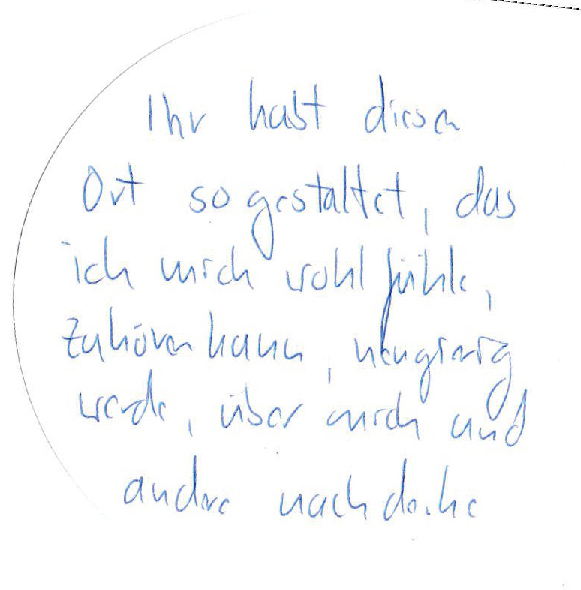 Ihr habt diesen
Ort so gestaltet, das
ich mich wohl fühle,
zuhören kann, neugierig
werde, über mich und
andere nachdenke